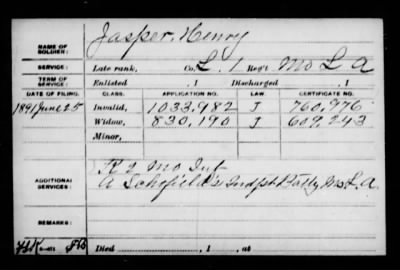 NAME OF SOLDIER: Jasper, Henry
SERVICE: Late rank, Co. L, 1 Reg't Mo L A
TERM OF SERVICE: Enlisted , 1 Discharged , 1
DATE OF FILING. CLASS. APPLICATION NO. LAW. CERTIFICATE NO.
1891 June 25 Invalid, 1033,982 J 760,776
Widow, 830,190 J 609,243
Minor,
ADDITIONAL SERVICES: K 2 Mo Inf
A Schofield's Indpt Batty Mo L. A.
REMARKS:
Died , 1 , at